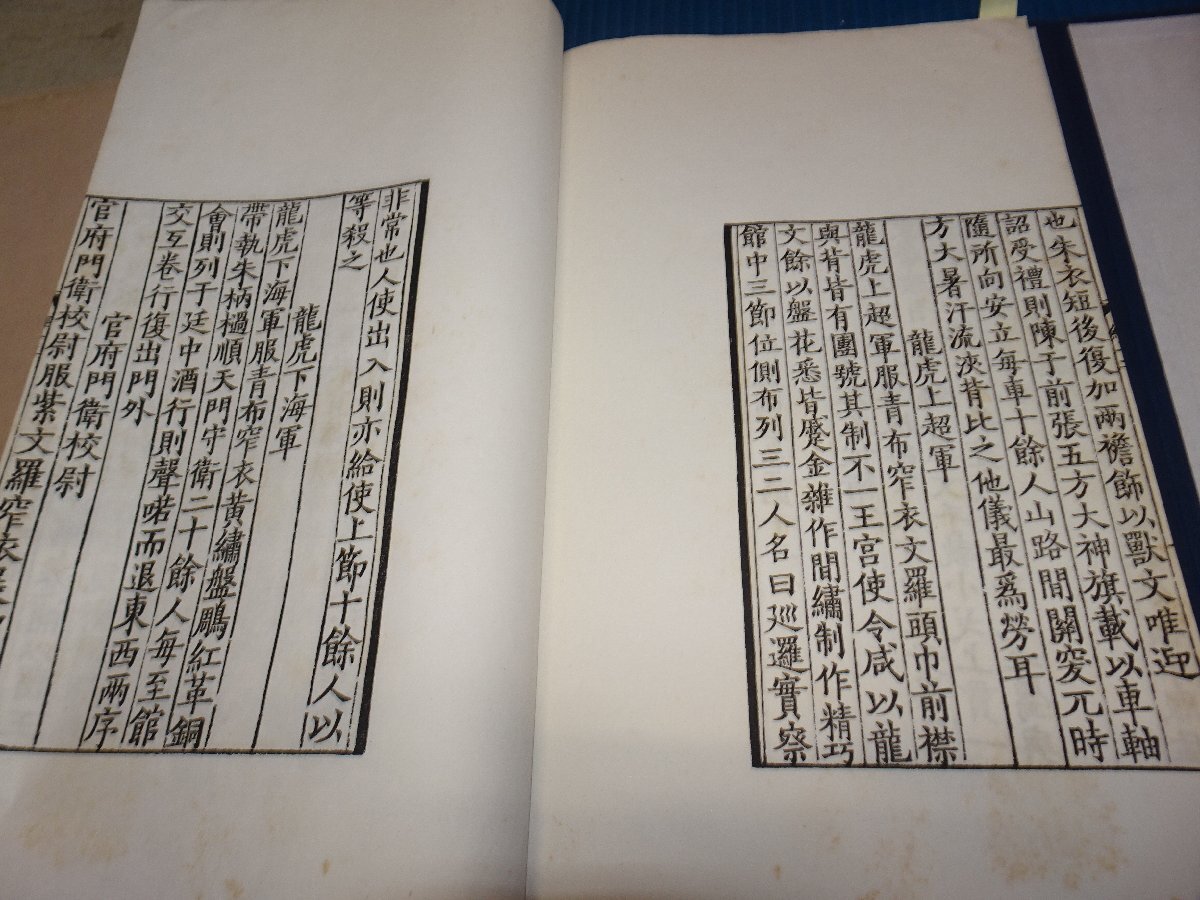 也朱衣短後復加兩襜飾以獸文唯迎
詔受禮則陳于前張五方大神旗載以車軸
隨所向安立每車十餘人山路間關窔兀時
方大暑汗流浹背比之他儀最爲勞耳
龍虎上超軍
龍虎上超軍服青布窄衣文羅頭巾前襟
與背皆有團號其制不一王宮使令咸以龍
文餘以盤花悉皆蹙金雜作間繡制作精巧
館中三節位側布列三二人名曰巡邏實察
非常也人使出入則亦給使上節十餘人以
等殺之
龍虎下海軍
龍虎下海軍服青布窄衣黃繡盤鵰紅革銅
帶執朱柄檛順天門守衛二十餘人每至館
會則列于廷中酒行則聲喏而退東西兩序
交互卷行復出門外
官府門衛校尉
官府門衛校尉服紫文羅窄衣